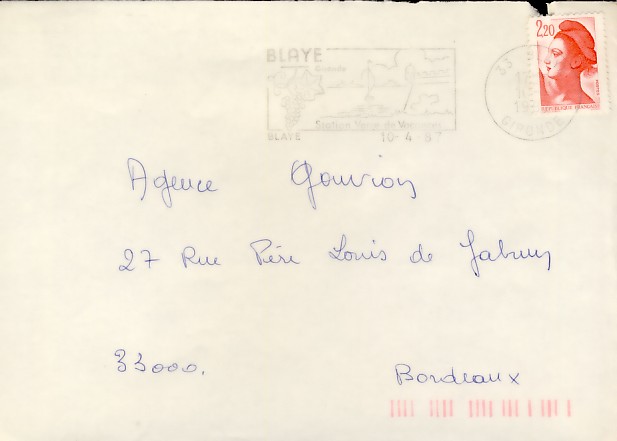 BLAYE
Gironde
Station Verte de Vacances
BLAYE
10- 4 8
33
GIRONDE
2,20
REPUBLIQUE FRANÇAISE
Agence Gouvion
27 Rue Père Louis de Jabrun
33000.
Bordeaux